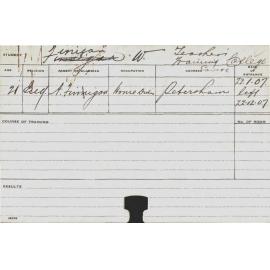 Finigan
STUDENT Finnigan W. Teachers Training College Course
AGE RELIGION PARENT OR GUARDIAN OCCUPATION ADDRESS DATE OF ENTRANCE
21 N. Finnigan Petersham 22.1.07
left
22.12.07
COURSE OF TRAINING NO. OF ROOM
RESULTS